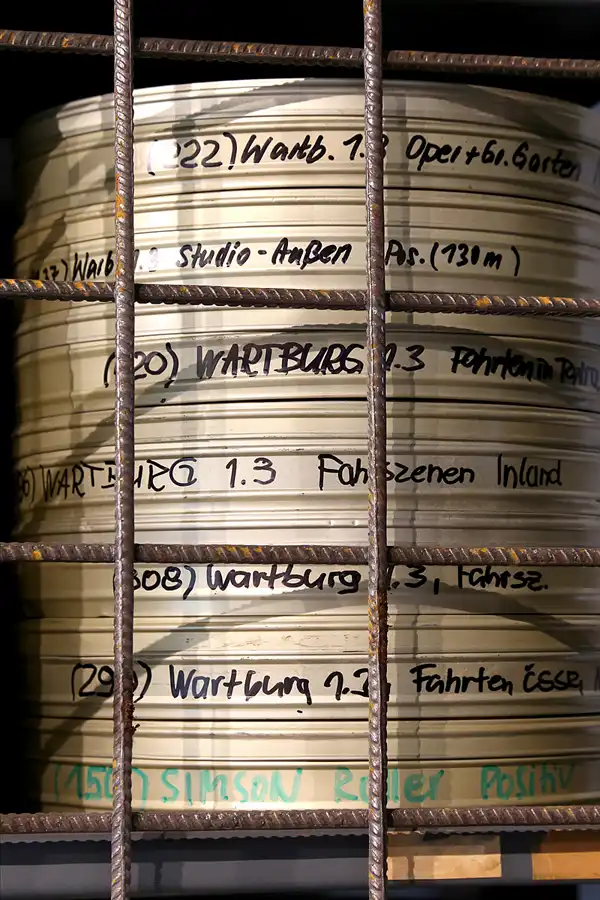 (222) Wartb. 1.3 Oper+Gr. Garten
Wartb. 1.3 Studio-Außen Pos. (130m)
WARTBURG 1.3 Fahrten in
WARTBURG 1.3 Fahrszenen Inland
(308) Wartburg 1.3, Fahrsz.
Wartburg 1.3, Fahrten ČSSR
(150) SIMSON Roller Positiv